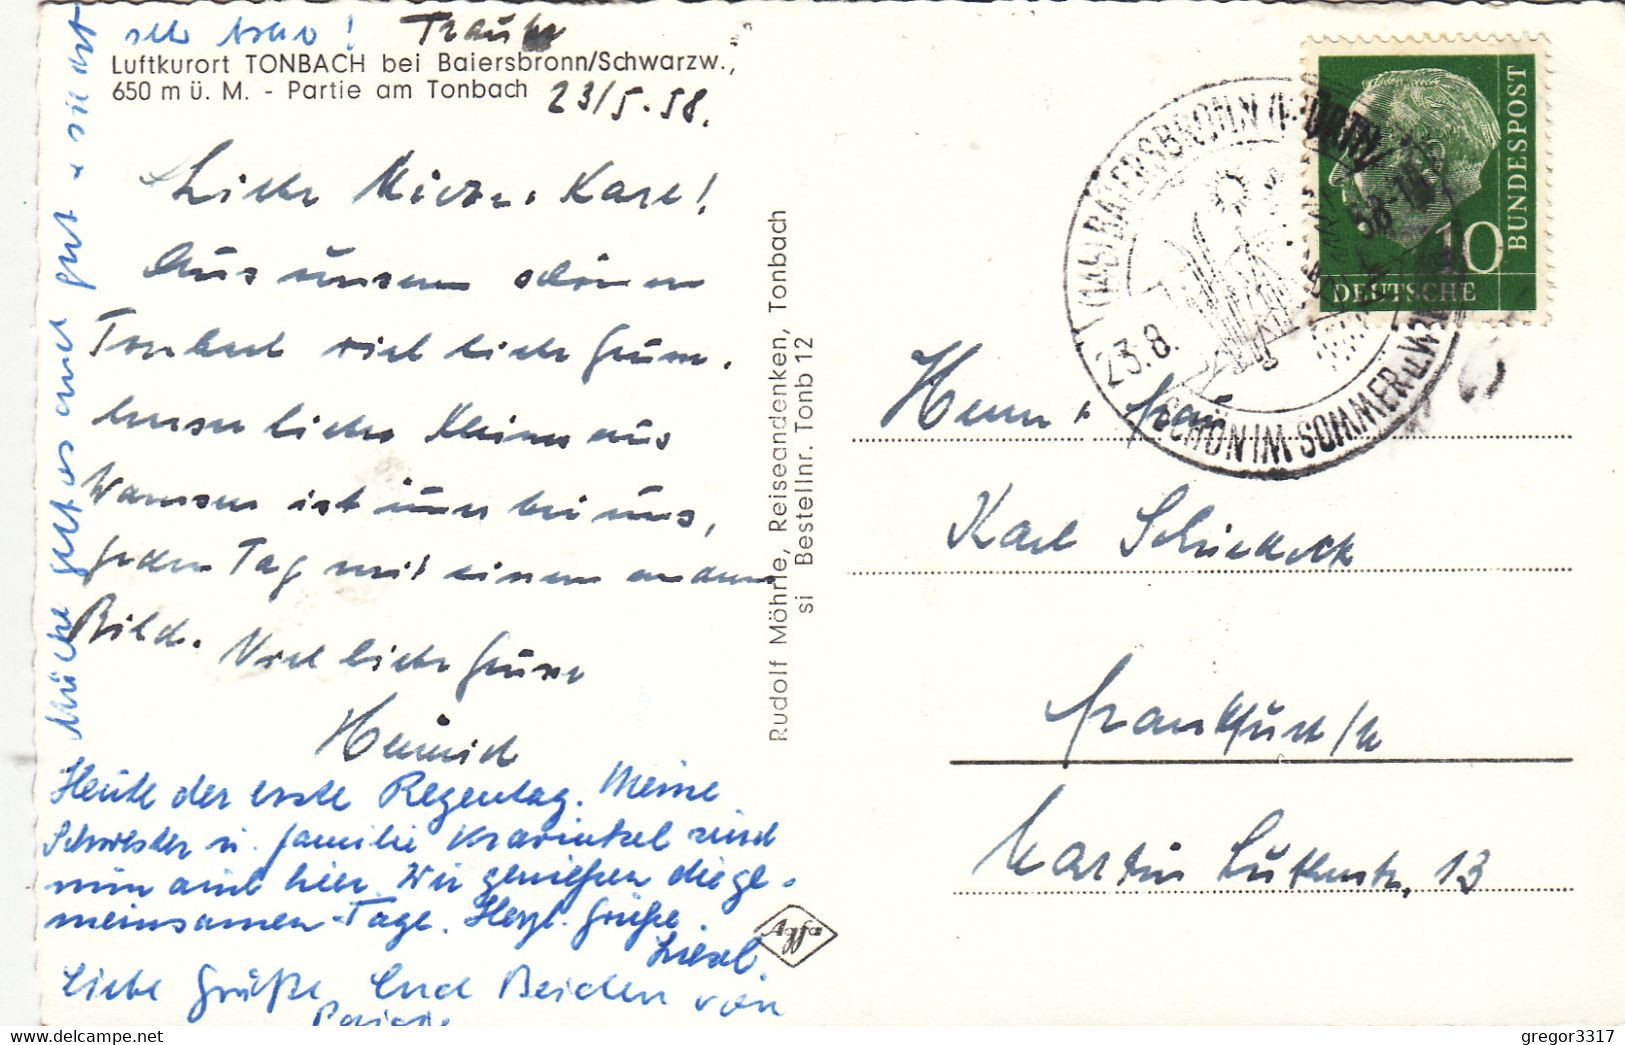 sehr
Traube
Luftkurort TONBACH bei Baiersbronn/Schwarzw.,
650 m ü. M. - Partie am Tonbach 23/5.58.
Liebe Karl!
Aus unserem schönen
Tonbach viel liebe Grüsse.
Unser lieber Kleiner aus
ist immer bei uns,
Jeden Tag mit einem andern
Bild. Viel liebe Grüsse
Heinrich
Heute der erste Regentag. Meine
Schwester u. Familie sind
nun auch hier. Wir genießen die ge-
meinsamen Tage. Herzl. Grüße
Liesel.
Liebe Grüße Euch Beiden von
geht es auch gut
Rudolf Möhrle, Reiseandenken, Tonbach
si Bestellnr. Tonb 12
BAIERSBRONN
23.8.
58-18
SCHÖN IM SOMMER u. W
DEUTSCHE
BUNDESPOST
10
Herrn + Frau
Karl
Frankfurt/M
Martin Lutherstr. 13
gregor3317